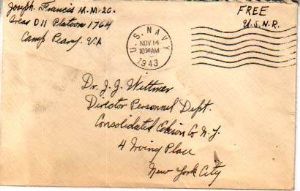 Joseph Francis M.M. 2C.
Area D11 Platoon 1764
Camp Peary, VA
U.S. NAVY
NOV 14
1943
FREE
U.S.N.R.
Dr. J. J. Wittmer
Director Personnel Dept.
Consolidated Edison Co N.Y.
4 Irving Place
New York City